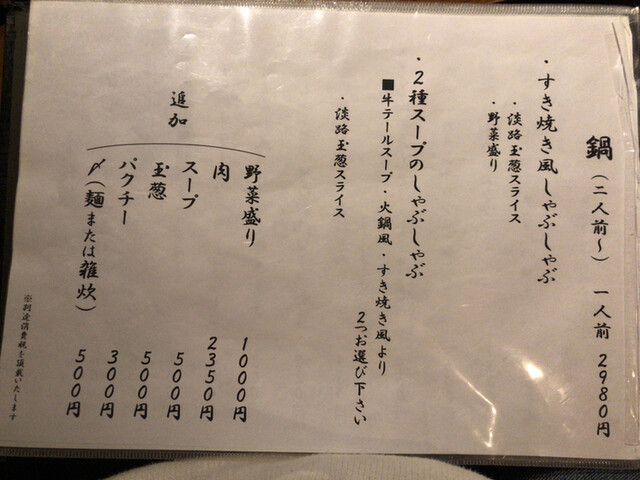 鍋(二人前〜) 一人前 2980円
・すき焼き風しゃぶしゃぶ
・淡路玉葱スライス
・野菜盛り
・2種スープのしゃぶしゃぶ
■牛テールスープ・火鍋風・すき焼き風より
2つお選び下さい
・淡路玉葱スライス
追加
野菜盛り 1000円
肉 2350円
スープ 500円
玉葱 500円
パクチー 300円
〆(麺または雑炊) 500円
※別途消費税を頂戴いたします